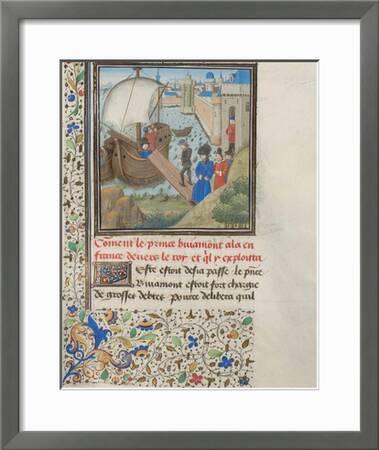 Coment le prince buiamont ala en
france deuers le roy et ql y exploitta
LEste estoit desia passe le prince
Buiamont estoit fort charge
de grosses debtes Pource delibera quil